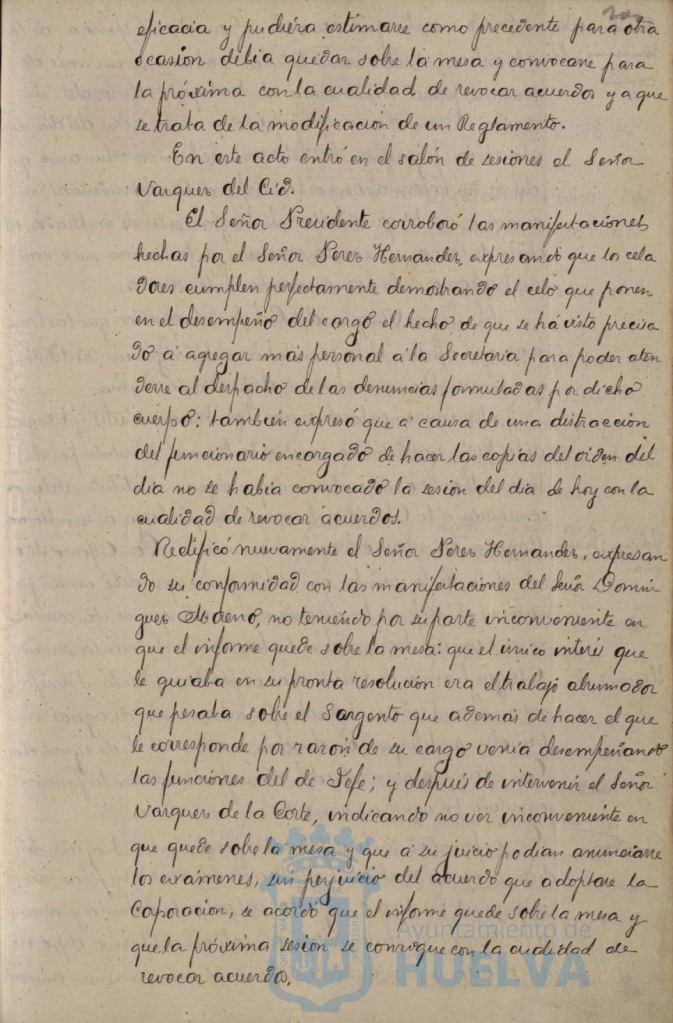 eficacia y pudiéra estimarse como precedente para otra
ocasión debia quedar sobre la mesa y convocarse para
la próxima con la cualidad de revocar acuerdos ya que
se trata de la modificación de un Reglamento.
En este acto entró en el salón de sesiones el Señor
Vazquez del Cid.
El Señor Presidente corroboró las manifestaciones
hechas por el Señor Perez Hernandez, expresando que los cela
dores cumplen perfectamente demostrando el celo que ponen
en el desempeño del cargo el hecho de que se há visto precisa
do á agregar más personal á la Secretaría para poder aten
derse al despacho de las denuncias formuladas por dicho
cuerpo: tambien expresó que á causa de una distracción
del funcionario encargado de hacer las copias del orden del
dia no se había convocado la sesion del dia de hoy con la
cualidad de revocar acuerdos.
Rectificó nuevamente el Señor Perez Hernandez, expresan
do su conformidad con las manifestaciones del Señor Domin
guez Moreno, no teniendo por su parte inconveniente en
que el informe quede sobre la mesa: que el único interés que
le guiaba en su pronta resolución era el trabajo abrumador
que pesaba sobre el Sargento que además de hacer el que
le corresponde por razón de su cargo venia desempeñando
las funciones del de Jefe; y después de intervenir el Señor
Vazquez de la Corte, indicando no ver inconveniente en
que quede sobre la mesa y que á su juicio podian anunciarse
los exámenes, sin perjuicio del acuerdo que adoptare la
Corporación, se acordó que el informe quede sobre la mesa y
que la próxima sesion se convoque con la cualidad de
revocar acuerdos.
Ayuntamiento de
HUELVA